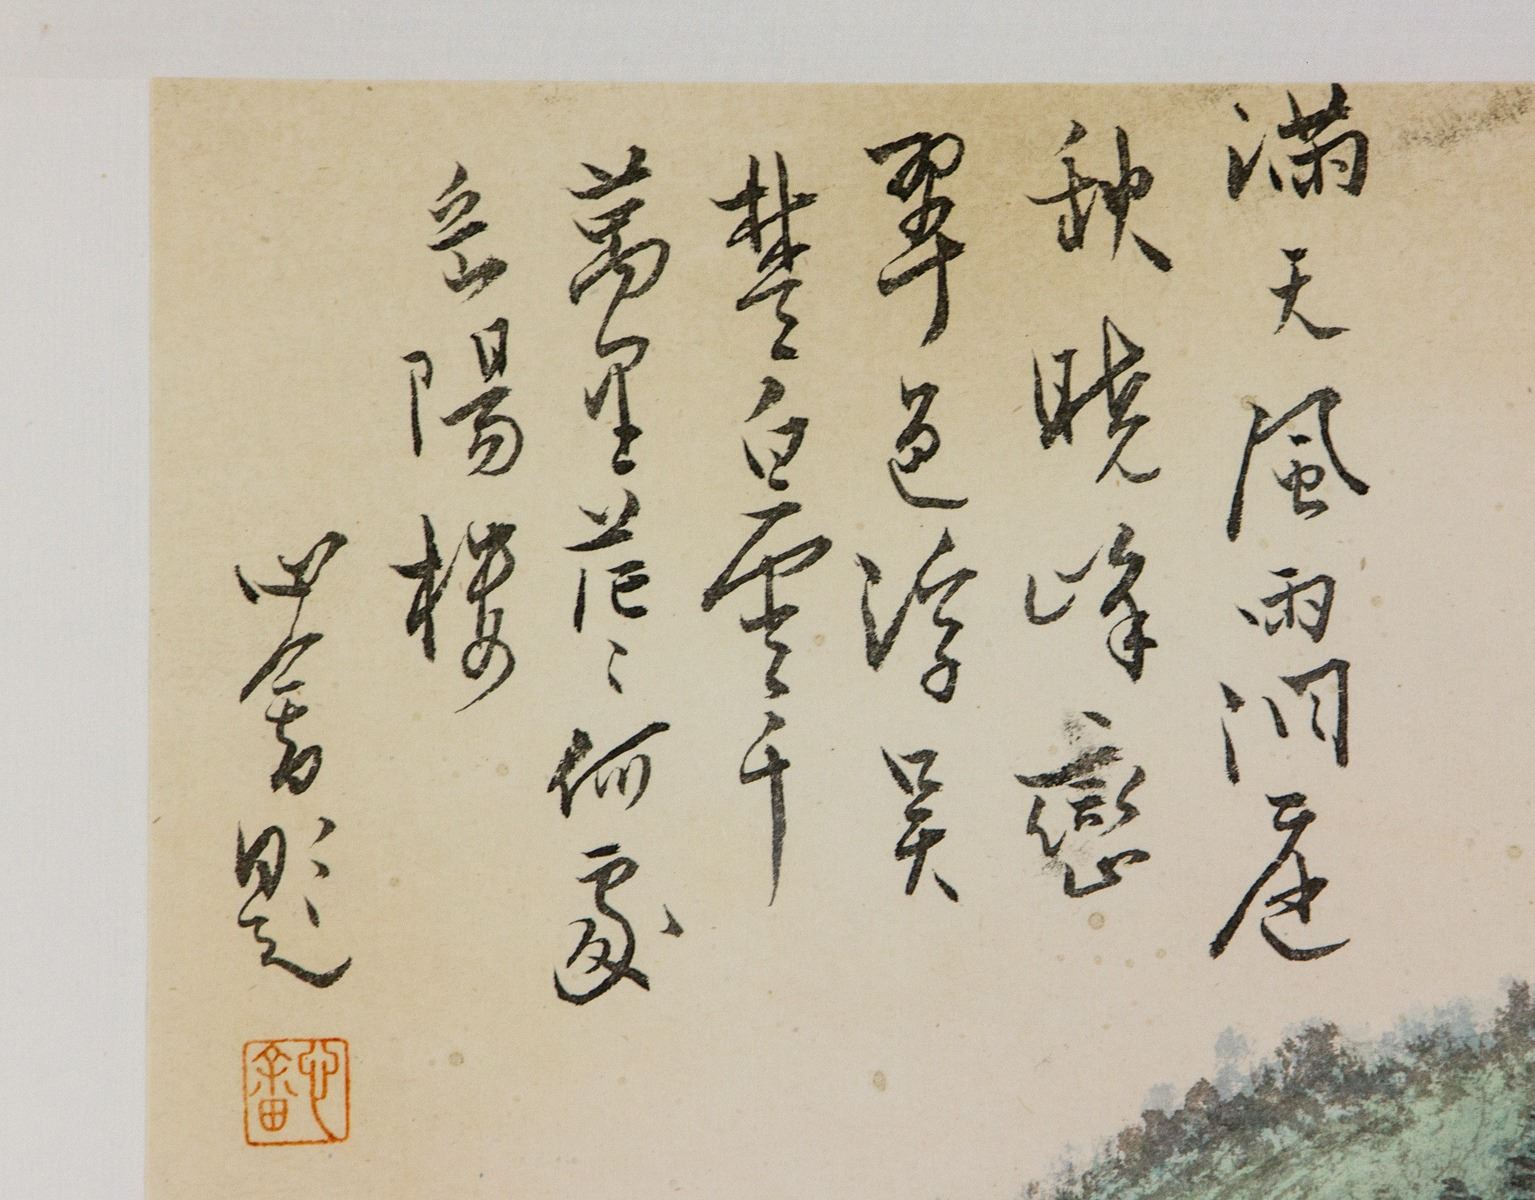 滿天風雨洞庭
秋曉峰巒
翠色浮吳
楚白雲千
萬里茫〻何處
岳陽樓
心畬題
心畬